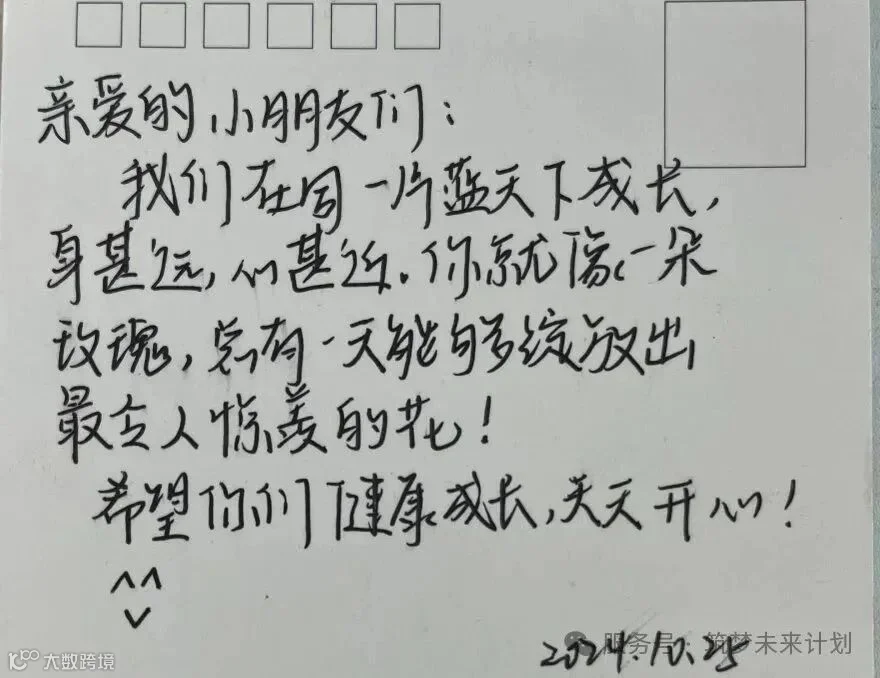 亲爱的小朋友们：
我们在同一片蓝天下成长，
身甚远，心甚近。你就像一朵
玫瑰，总有一天能够绽放出
最令人惊羡的花！
希望你们健康成长，天天开心！
^^
v
2024.10.25
服务号·筑梦未来计划
大数跨境